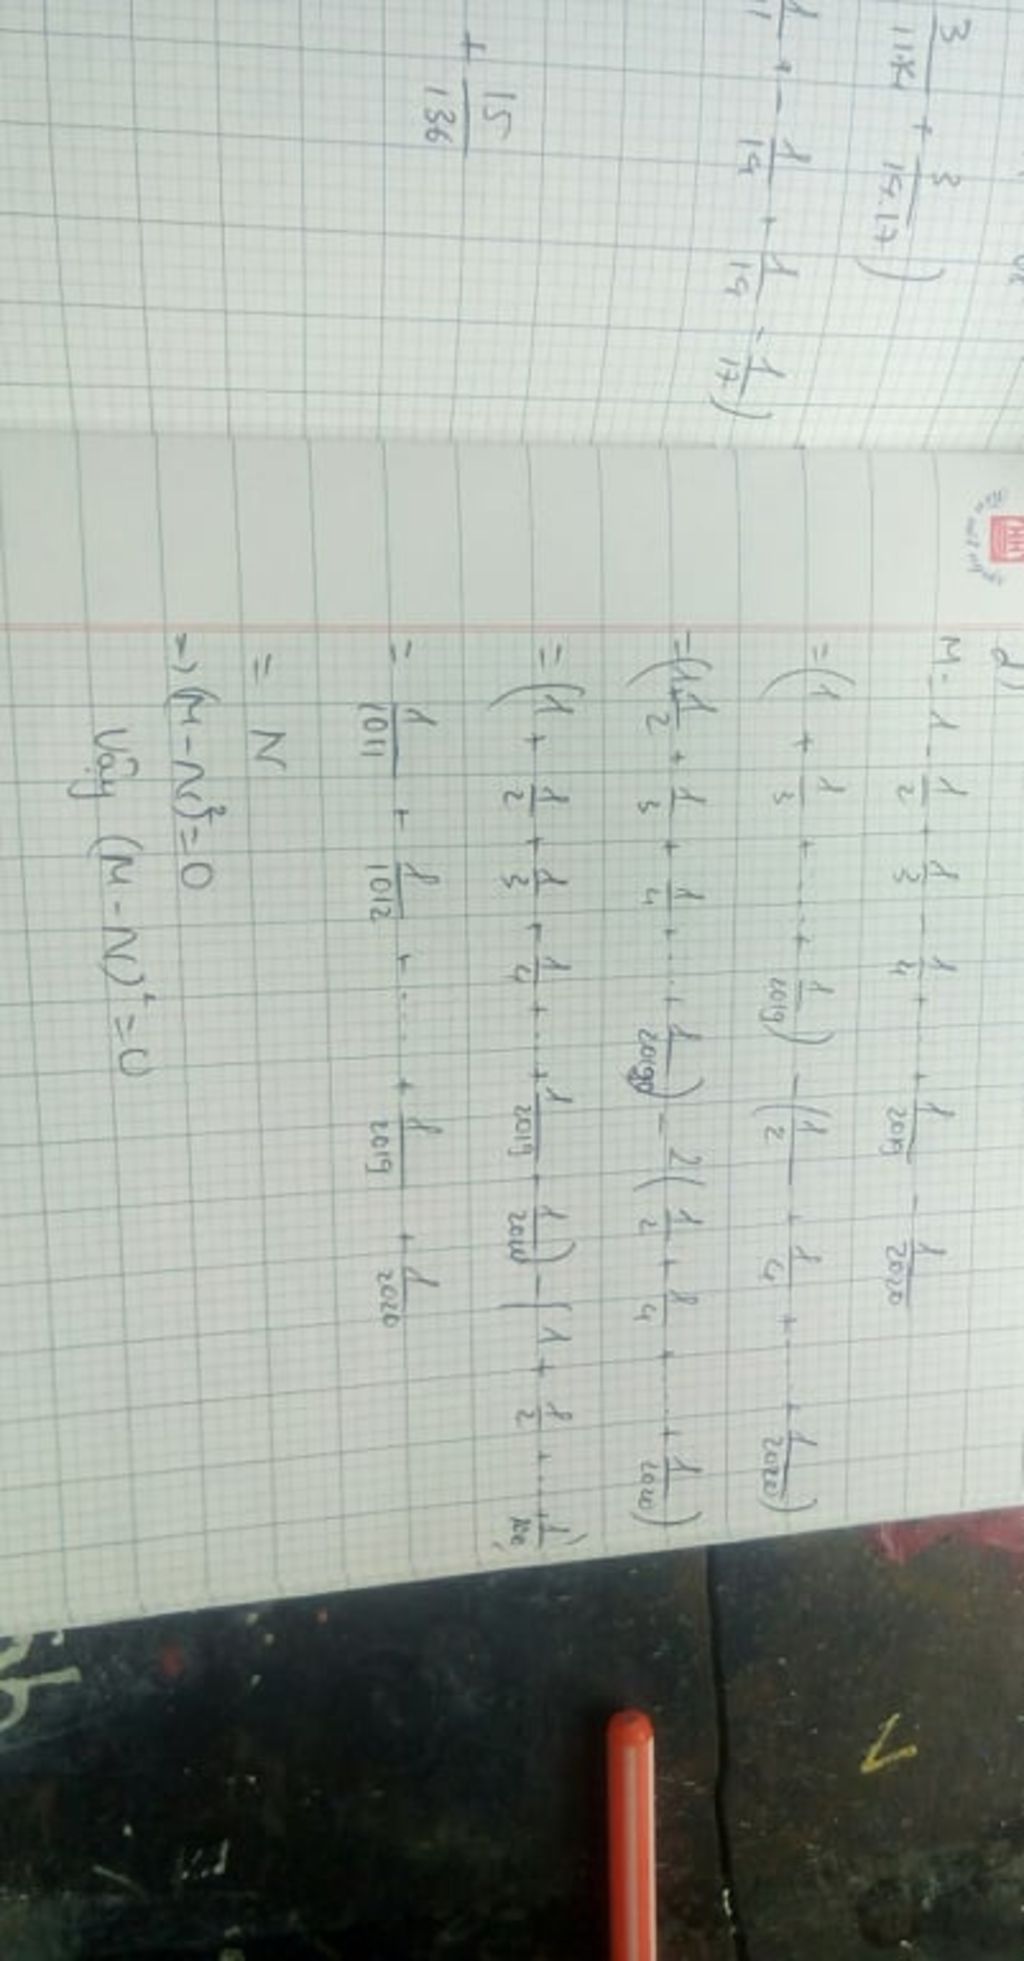 3/11.14 + 3/14.17)
+ - 1/14 + 1/14 - 1/17)
+ 15/136
d)
M = 1 - 1/2 + 1/3 - 1/4 + ... + 1/2019 - 1/2020
= (1 + 1/3 + ..... + 1/2019) - (1/2 + 1/4 + ..... + 1/2020)
= (1 + 1/2 + 1/3 + 1/4 + ..... + 1/2019) - 2(1/2 + 1/4 + ..... + 1/2020)
= (1 + 1/2 + 1/3 + 1/4 + ..... + 1/2019 + 1/2020) - (1 + 1/2 + ....
= 1/1011 + 1/1012 + ..... + 1/2019 + 1/2020
= N
=> (M - N)² = 0
Vậy (M - N)² = 0